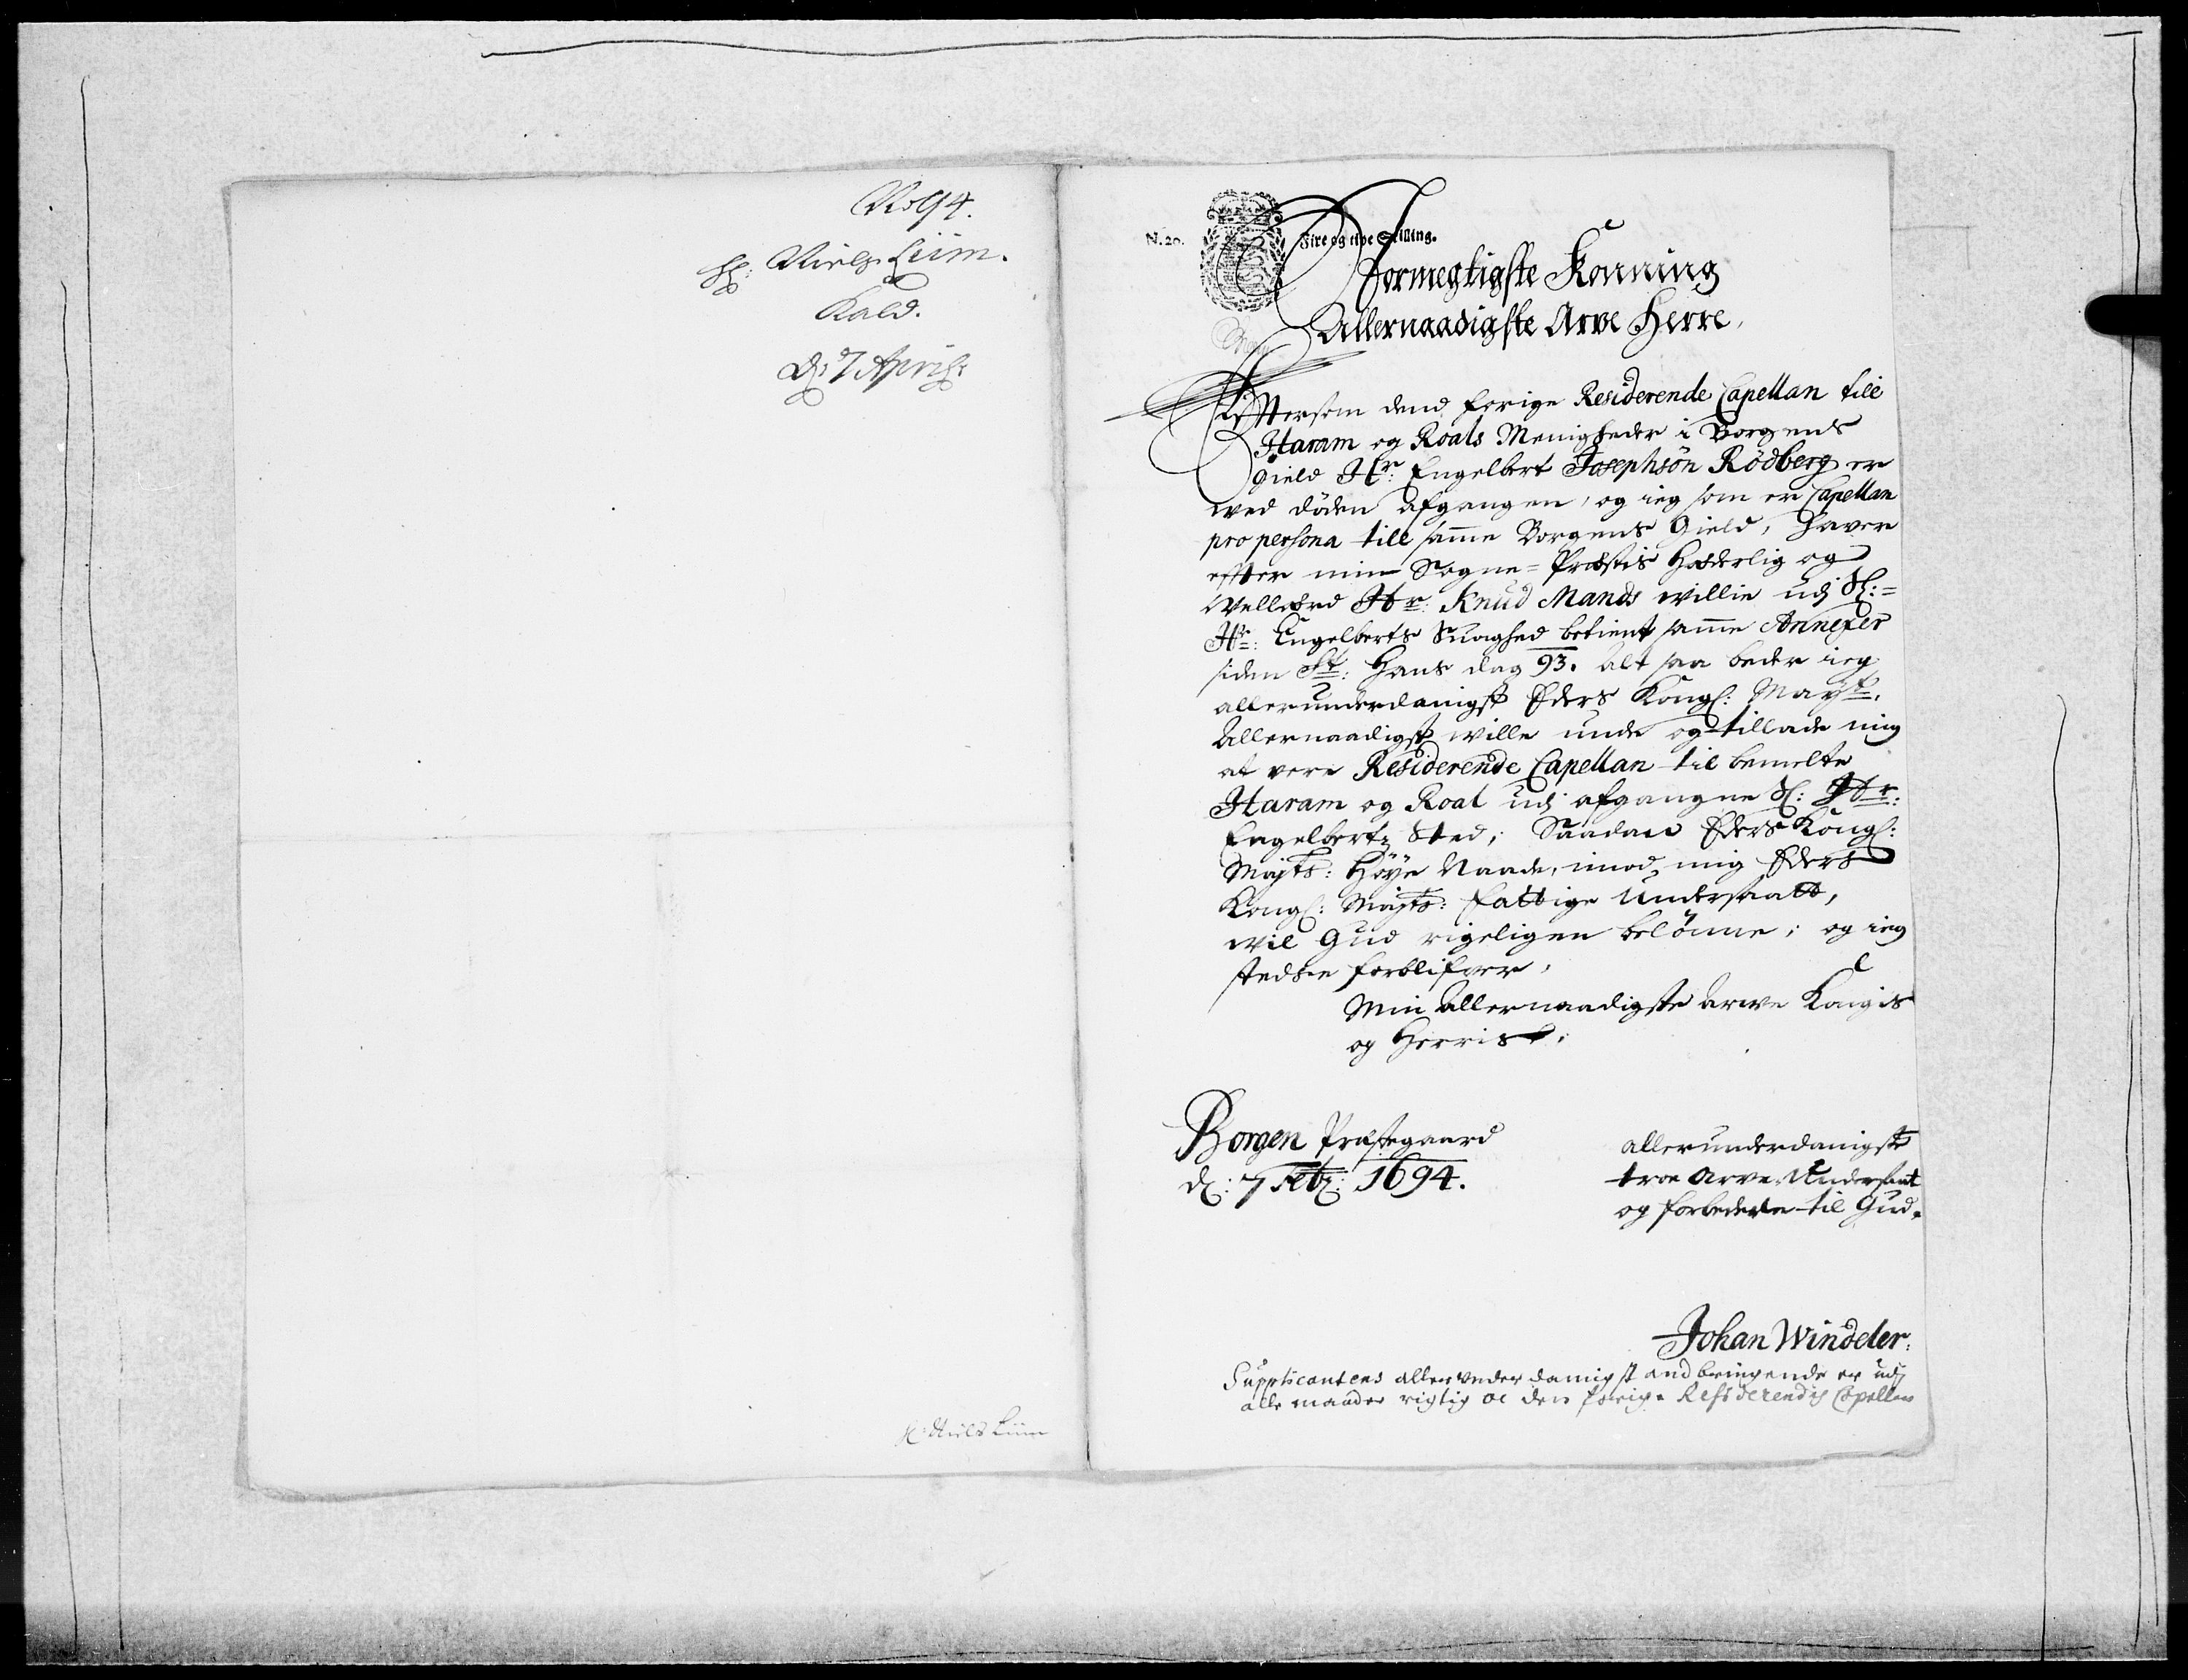 No 94.
H: Niels Liim.
Kald.
D: 7 April:
H: Niels Liim
N. 20.
Fire og tive Skilling.
Stormegtigste Konning
Allernaadigste Arve Herre,
Efftersom dend forige Residerende Capellan till
Haram og Roals Menigheder i Borgens
Gield Hr: Engelbert Josephsön Rödberg er
ved döden afgangen, og ieg som er Capellan
pro persona till samme Borgens Gield, haver
effter min Sogne=Præstis Hæderlig og
Vellærd Hr: Knud Mands villie udj Sl:=
Hr: Engelberts Suaghed betient samme Annexer
siden St: Hans dag 93. alt saa beder ieg
allerunderdanigst Eders Kongl: Mayt.
Allernaadigst ville unde og tillade mig
at vere Residerende Capellan til bemelte
Haram og Roal udj afgangne Sl: Hr:
Engelbertz Sted; Saadan Eders Kongl:
Majts: Höye Naade, imod mig Eders
Kongl: Majts: fattige Undersaatt,
vil Gud rigeligen belönne; og ieg
stedse forblifver,
Min Allernaadigste Arve Kongis
og Herris
Borgen Præstegaard
d: 7 Feb: 1694.
allerunderdanigste
troe Arve Undersaat
og forbedere til Gud.
Johan Windeler.
Supplicantens allerunderdanigst andbringende er udj
alle maader rigtig oc den forige Residerendis Capellan